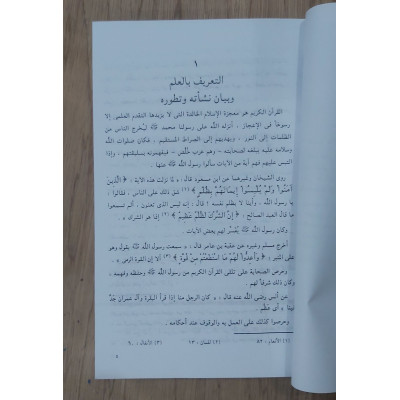 ١
التعريف بالعلم
وبيان نشأته وتطوره
القرآن الكريم هو معجزة الإسلام الخالدة التي لا يزيدها التقدم العلمي إلا
رسوخاً في الإعجاز ، أنزله الله على رسولنا محمد ﷺ ليخرج الناس من
الظلمات إلى النور ، ويهديهم إلى الصراط المستقيم ، فكان صلوات الله
وسلامه عليه يبلغه لصحابته – وهم عرب خُلَّص – فيفهمونه بسليقتهم ، وإذا
التبس عليهم فهم آية من الآيات سألوا رسول الله ﷺ عنها .
روى الشيخان وغيرهما عن ابن مسعود قال : « لما نزلت هذه الآية : ﴿ الَّذِينَ
آمَنُوا وَلَمْ يَلْبِسُوا إِيمَانَهُمْ بِظُلْمٍ ﴾ (١) شق ذلك على الناس ، فقالوا :
يا رسول الله ، وأينا لا يظلم نفسه ؟ قال : إنه ليس الذي تعنون ، ألم تسمعوا
ما قال العبد الصالح : ﴿ إِنَّ الشِّرْكَ لَظُلْمٌ عَظِيمٌ ﴾ (٢) إنما هو الشرك » .
وكان رسول الله ﷺ يُفسِّر لهم بعض الآيات .
أخرج مسلم وغيره عن عقبة بن عامر قال : « سمعت رسول الله ﷺ يقول وهو
على المنبر : ﴿ وَأَعِدُّوا لَهُمْ مَا اسْتَطَعْتُمْ مِنْ قُوَّةٍ ﴾ (٣) ألا إن القوة الرمي » .
وحرص الصحابة على تلقي القرآن الكريم من رسول الله ﷺ وحفظه وفهمه ،
وكان ذلك شرفاً لهم .
عن أنس رضي الله عنه قال : « كان الرجل منا إذا قرأ البقرة وآل عمران جَدَّ
فينا » أي عظم .
وحرصوا كذلك على العمل به والوقوف عند أحكامه .
(١) الأنعام : ٨٢ (٢) لقمان : ١٣ (٣) الأنفال : ٦٠